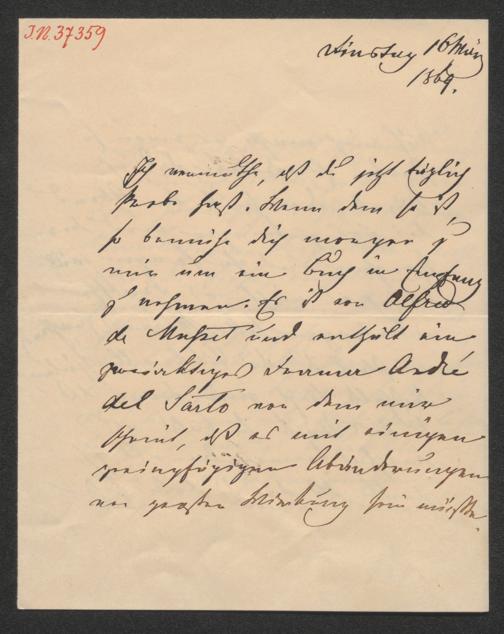 I.N. 37359
Dinstag 16 März
1869.
Ich vermuthe, daß du jetzt täglich
Probe hast. Wenn dem so ist,
so bemühe dich morgen zu
mir um ein Buch in Empfang
zu nehmen. Es ist von Alfred
de Musset und enthält ein
zweiaktiges Drama André
del Sarto von dem mir
scheint, daß es mit einigen
geringfügigen Abänderungen
von großer Wirkung sein müßte.